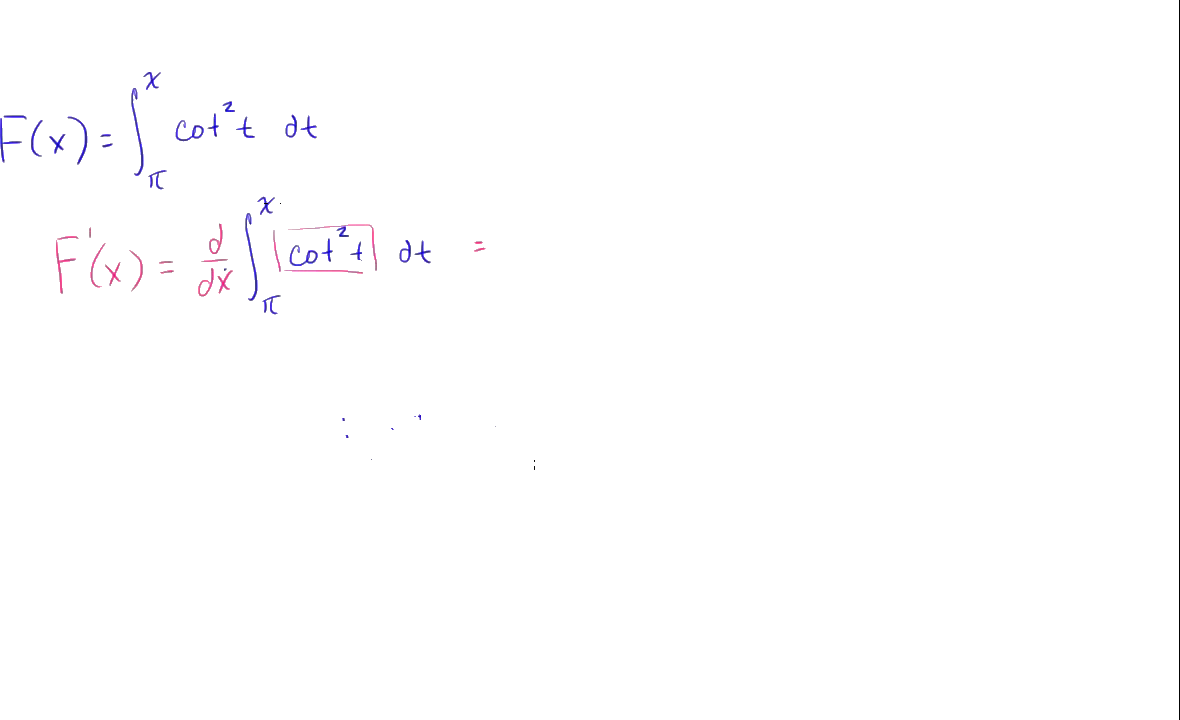 F(x) = ∫_π^x cot²t dt
F'(x) = d/dx ∫_π^x cot²t dt =